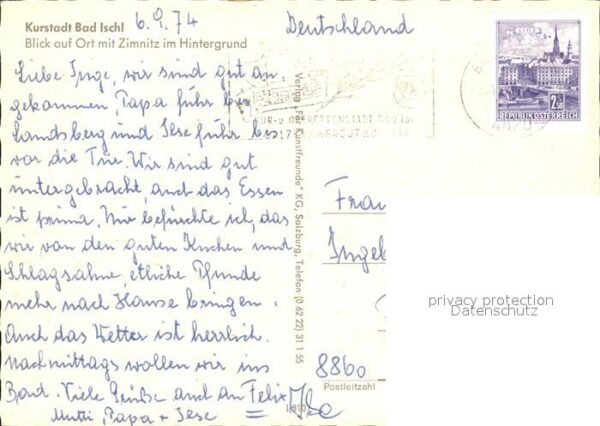 Kurstadt Bad Ischl
Blick auf Ort mit Zimnitz im Hintergrund
6.9.74
Deutschland
Liebe Inge, wir sind gut an
gekommen Papa fuhr bis
Landsberg und Ilse fuhr bis
vor die Tür. Wir sind gut
untergebracht, auch das Essen
ist prima. Nur befürchte ich, das
wir von den guten Kuchen und
Schlagsahne, etliche Pfunde
mehr nach Hause bringen.
Auch das Wetter ist herrlich.
Nachmittags wollen wir ins
Bad. Viele Grüße auch an Felix
Mutti, Papa + Ilse
Verlag "Für Kunstfreunde" KG, Salzburg, Telefon (0 62 22) 31 1 55
KUR- u. OPERETTENSTADT BAD ISCHL
2.50
REPUBLIK ÖSTERREICH
4820
Frau
Ingeb
8860
Postleitzahl
privacy protection
Datenschutz